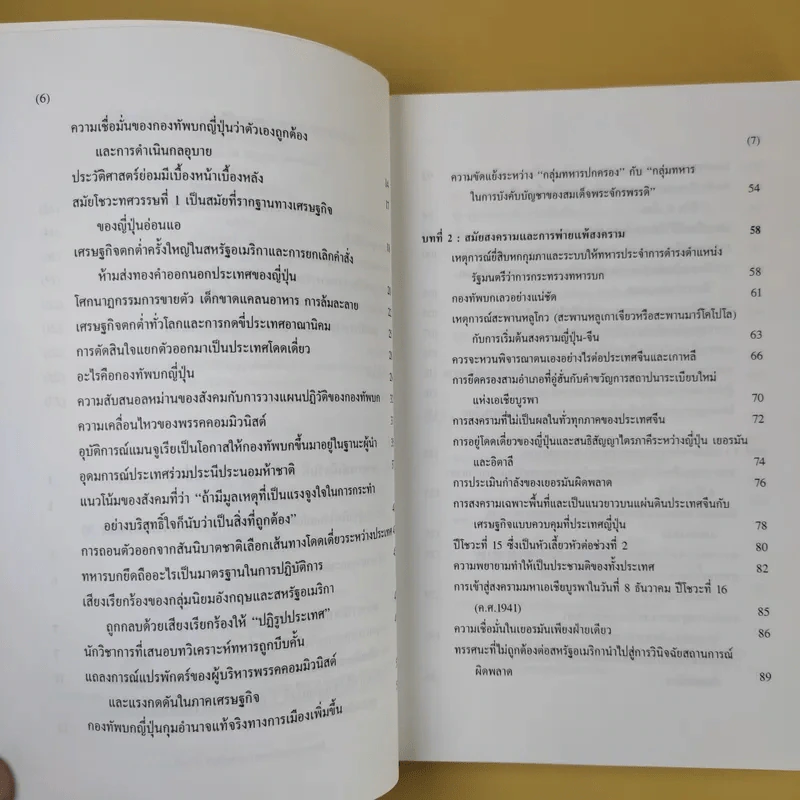 (6)
ความเชื่อมั่นของกองทัพบกญี่ปุ่นว่าตัวเองถูกต้อง
และการดำเนินกลอุบาย
ประวัติศาสตร์ย่อมมีเบื้องหน้าเบื้องหลัง
สมัยโชวะทศวรรษที่ 1 เป็นสมัยที่รากฐานทางเศรษฐกิจ
ของญี่ปุ่นอ่อนแอ
เศรษฐกิจตกต่ำครั้งใหญ่ในสหรัฐอเมริกาและการยกเลิกคำสั่ง
ห้ามส่งทองคำออกนอกประเทศของญี่ปุ่น
โศกนาฏกรรมการขายตัว เด็กขาดแคลนอาหาร การล้มละลาย
เศรษฐกิจตกต่ำทั่วโลกและการกดขี่ประเทศอาณานิคม
การตัดสินใจแยกตัวออกมาเป็นประเทศโดดเดี่ยว
อะไรคือกองทัพบกญี่ปุ่น
ความสับสนอลหม่านของสังคมกับการวางแผนปฏิวัติของกองทัพบก
ความเคลื่อนไหวของพรรคคอมมิวนิสต์
อุบัติการณ์แมนจูเรียเป็นโอกาสให้กองทัพบกขึ้นมาอยู่ในฐานะผู้นำ
อุดมการณ์ประเทศร่วมประนีประนอมห้าชาติ
แนวโน้มของสังคมที่ว่า “ถ้ามีมูลเหตุที่เป็นแรงจูงใจในการกระทำ
อย่างบริสุทธิ์ใจก็นับว่าเป็นสิ่งที่ถูกต้อง”
การถอนตัวออกจากสันนิบาตชาติเลือกเส้นทางโดดเดี่ยวระหว่างประเทศ
ทหารบกยึดถืออะไรเป็นมาตรฐานในการปฏิบัติการ
เสียงเรียกร้องของกลุ่มนิยมอังกฤษและสหรัฐอเมริกา
ถูกกลบด้วยเสียงเรียกร้องให้ “ปฏิรูปประเทศ”
นักวิชาการที่เสนอบทวิเคราะห์ทหารถูกบีบคั้น
แถลงการณ์แปรพักตร์ของผู้บริหารพรรคคอมมิวนิสต์
และแรงกดดันในภาคเศรษฐกิจ
กองทัพบกญี่ปุ่นกุมอำนาจแท้จริงทางการเมืองเพิ่มขึ้น
(7)
ความขัดแย้งระหว่าง “กลุ่มทหารปกครอง” กับ “กลุ่มทหาร
ในการบังคับบัญชาของสมเด็จพระจักรพรรดิ” 54
บทที่ 2 : สมัยสงครามและการพ่ายแพ้สงคราม 58
เหตุการณ์ยี่สิบหกกุมภาและระบบให้ทหารประจำการดำรงตำแหน่ง
รัฐมนตรีว่าการกระทรวงทหารบก 58
กองทัพบกเลวอย่างแน่ชัด 61
เหตุการณ์สะพานหลูโกว (สะพานหลูเกาเจียวหรือสะพานมาร์โคโปโล)
กับการเริ่มต้นสงครามญี่ปุ่น-จีน 63
ควรจะหวนพิจารณาตนเองอย่างไรต่อประเทศจีนและเกาหลี 66
การยึดครองสามอำเภอที่อู่ฮั่นกับคำขวัญการสถาปนาระเบียบใหม่
แห่งเอเชียบูรพา 70
การสงครามที่ไม่เป็นผลในทั่วทุกภาคของประเทศจีน 72
การอยู่โดดเดี่ยวของญี่ปุ่นและสนธิสัญญาไตรภาคีระหว่างญี่ปุ่น เยอรมัน
และอิตาลี 74
การประเมินกำลังของเยอรมันผิดพลาด 76
การสงครามเฉพาะพื้นที่และเป็นแนวยาวบนแผ่นดินประเทศจีนกับ
เศรษฐกิจแบบควบคุมที่ประเทศญี่ปุ่น 78
ปีโชวะที่ 15 ซึ่งเป็นหัวเลี้ยวหัวต่อช่วงที่ 2 80
ความพยายามทำให้เป็นประชามติของทั้งประเทศ 82
การเข้าสู่สงครามมหาเอเชียบูรพาในวันที่ 8 ธันวาคม ปีโชวะที่ 16
(ค.ศ.1941) 85
ความเชื่อมั่นในเยอรมันเพียงฝ่ายเดียว 86
ทรรศนะที่ไม่ถูกต้องต่อสหรัฐอเมริกานำไปสู่การวินิจฉัยสถานการณ์
ผิดพลาด 89